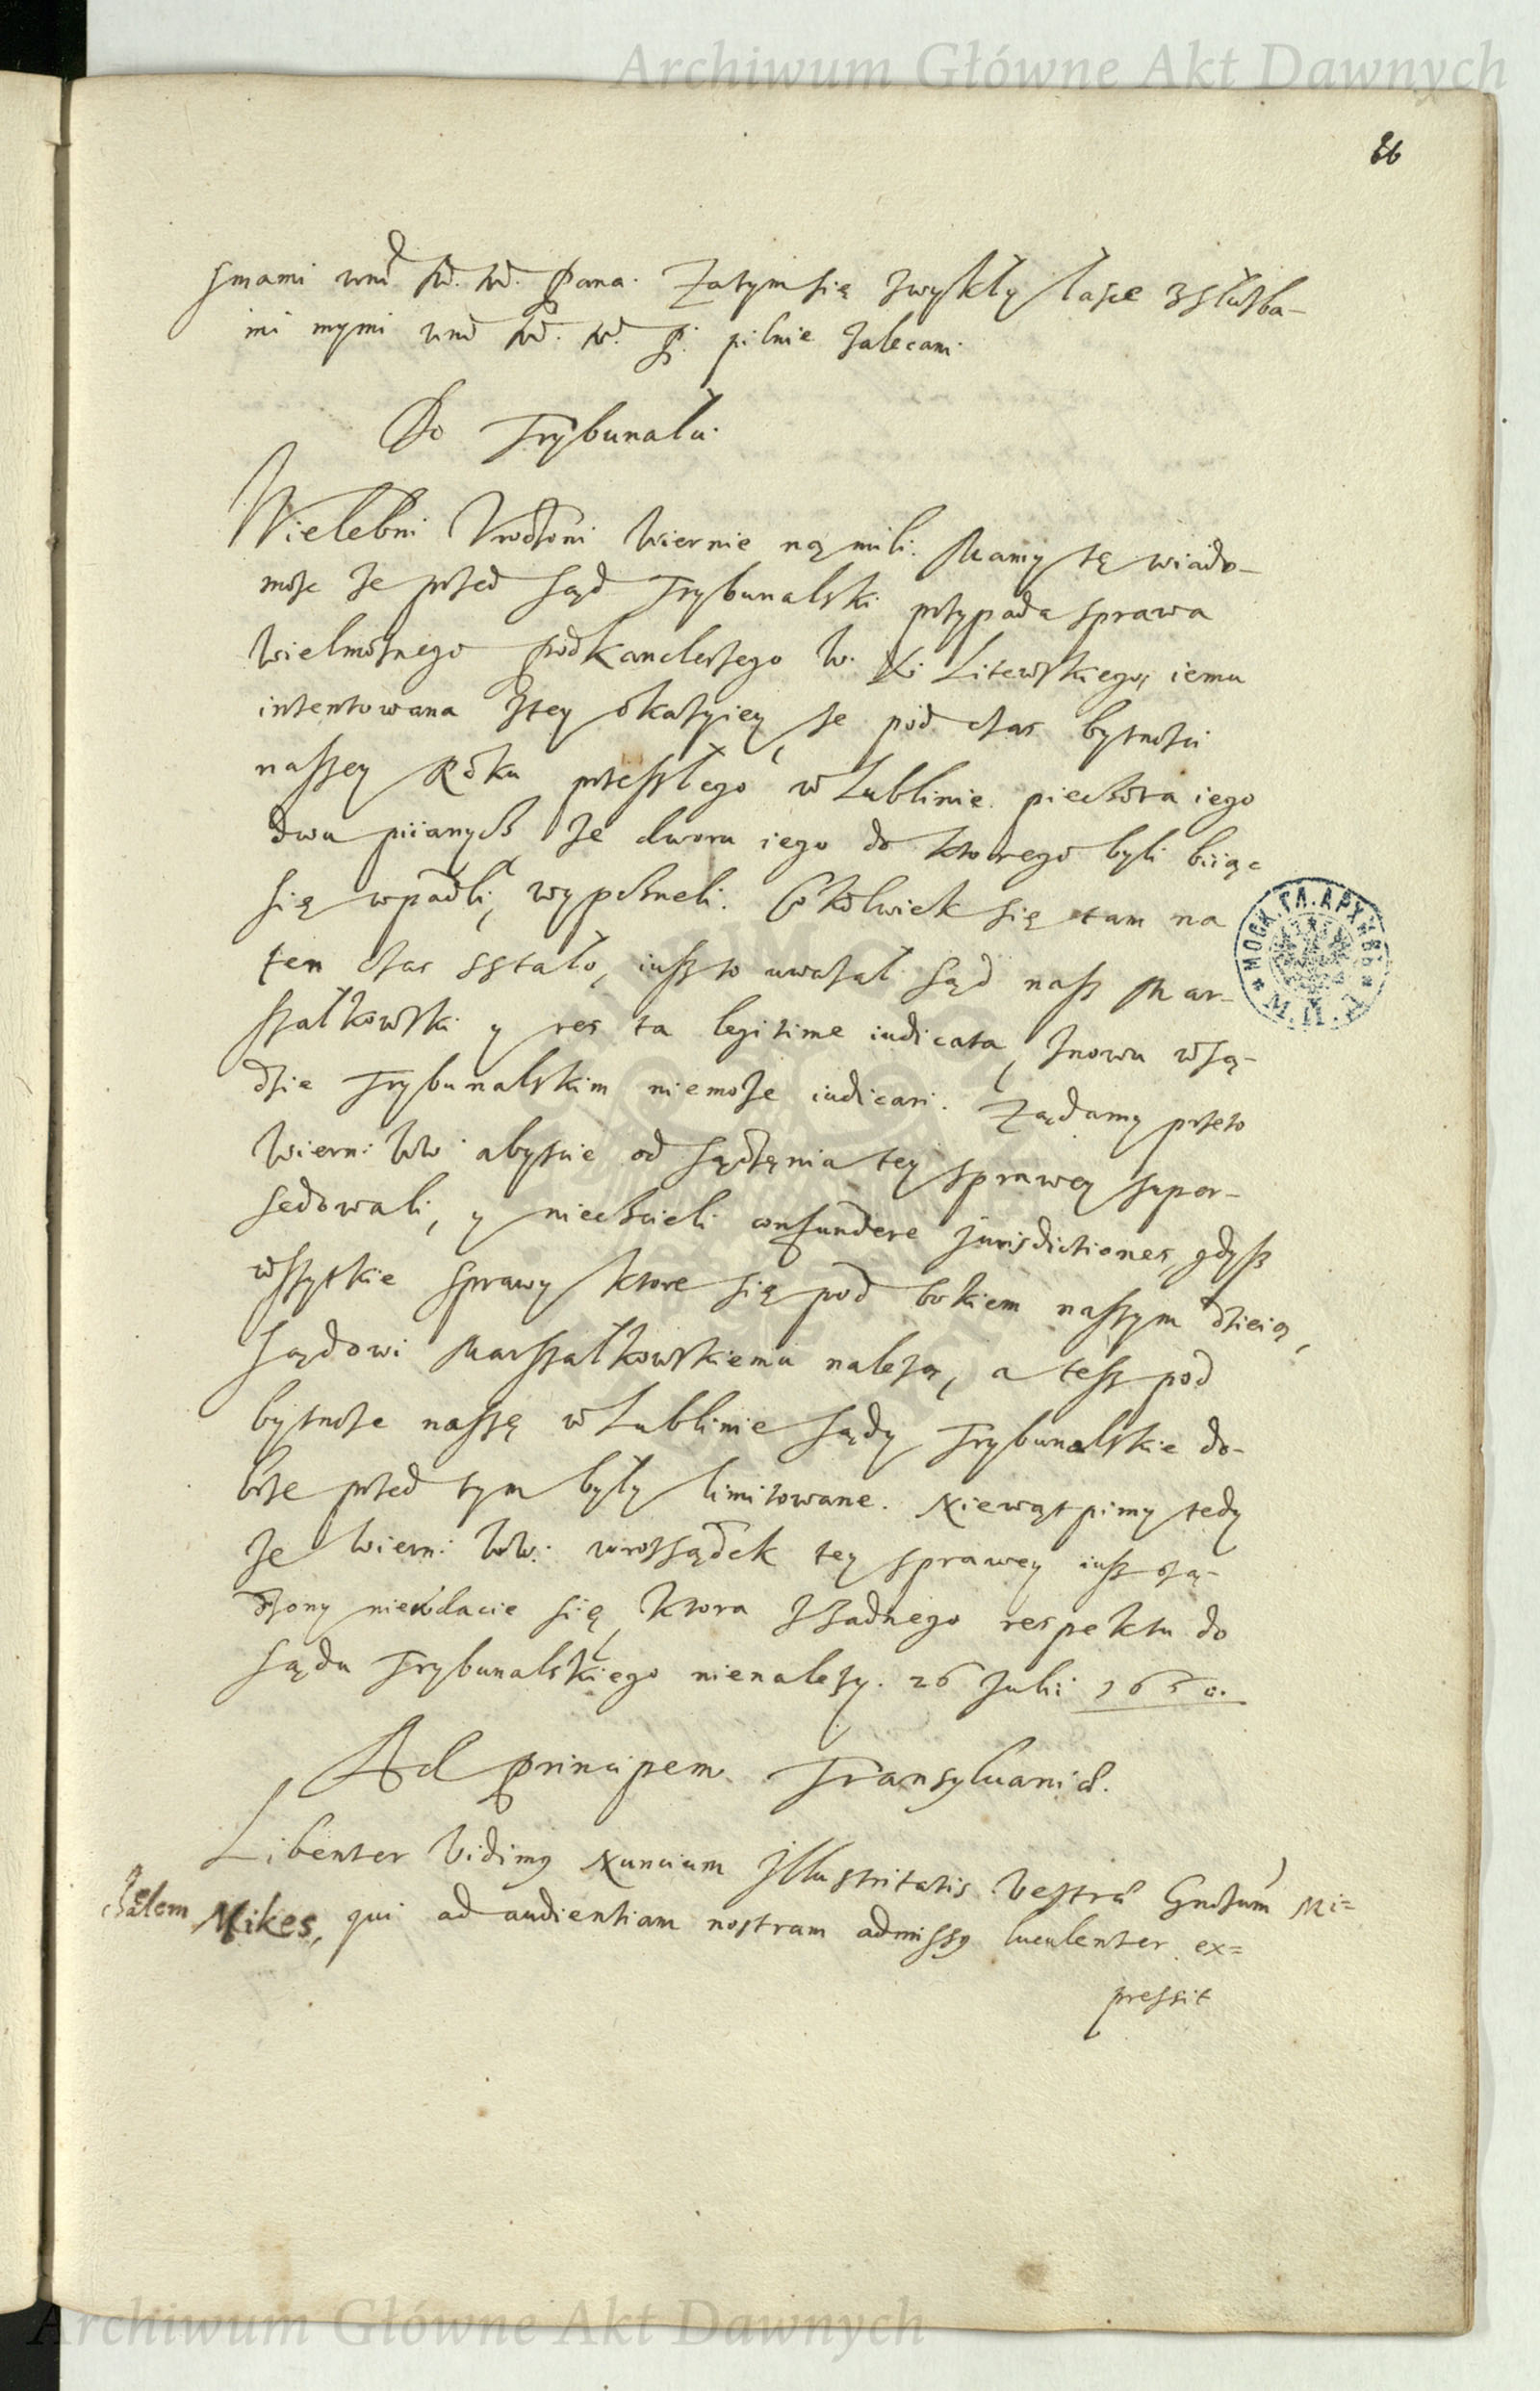 Archiwum Główne Akt Dawnych
86
smami wm̃ Mł. Mł. Pana. Zatym się zwykły łasce z służba-
mi mymi wm̃ Mł. M. P. pilnie zalecam.
Do Trybunału.
Wielebni Vrodzoni Wiernie ną mili. Mamy tę wiado-
mosc że przed sąd Trybunalski przypada sprawa
Wielmożnego podkanclerzego W. X. Litewskiego, iemu
intentowana z tey okazyiey, że pod czas bytnosci
naszey Roku przeszłego w Lublinie piechota iego
dwu piianych ze dworu iego do ktorego byli biiąc
się wpadli, wypchneli. Cokolwiek się tam na
ten czas sstało, iusz to uważał sąd nasz Mar-
szałkowski y res ta legitime iudicata, znowu w są-
dzie Trybunalskim niemoże iudicari. Żądamy przeto
Wiern: WW: abyscie od sądzęnia tey sprawey super-
sedowali, y niechcieli confundere jurisdictiones, gdysz
wszytkie sprawy ktore się pod bokiem naszym dzieią,
sądowi Marszałkowskiemu należą, a tesz pod
bytnosc naszę w Lublinie sądy Trybunalskie do-
brze przed tym były limitowane. Niewątpimy tedy
że Wiern: WW: w rozsądek tey sprawey iusz osą-
dzony niewdacie się, ktora z żadnego respektu do
sądu Trybunalskiego nienależy. 26 Julii 1650.
Ad principem Transyluaniæ.
Libenter vidimus Nuncium Illustritatis Vestræ Gnosum Mi=
chælem Mikes, qui ad audientiam nostram admissus luculenter ex=
pressit
МОСК. ГЛ. АРХИВЪ
М. И. Д.
Archiwum Główne Akt Dawnych